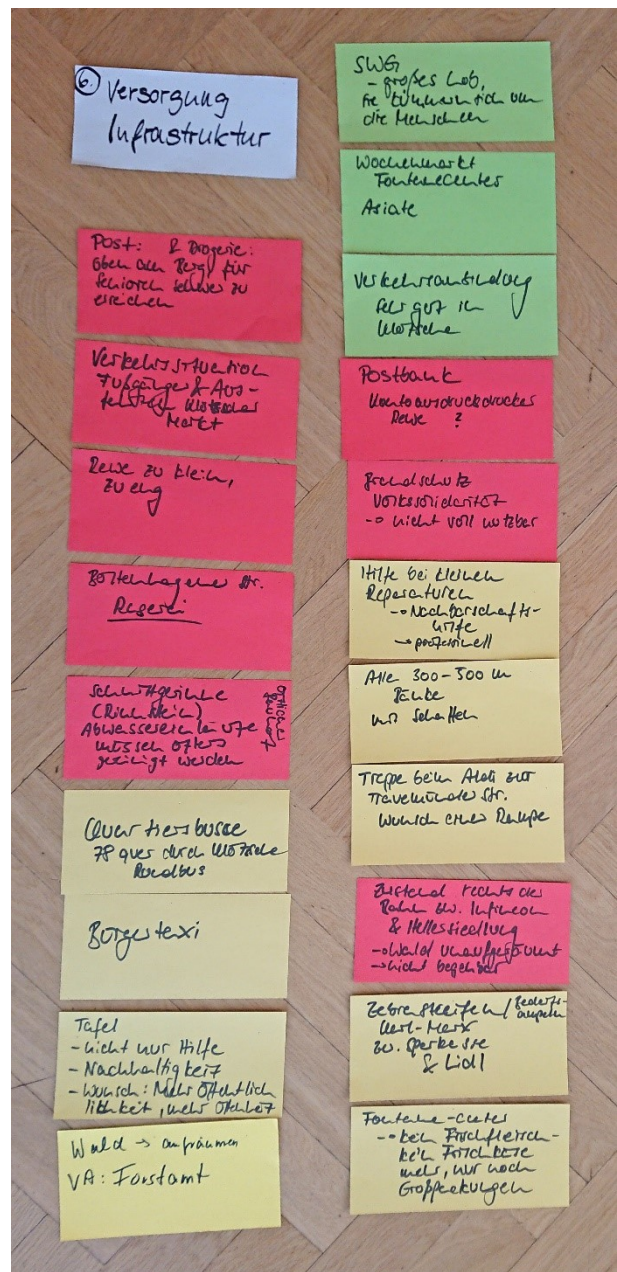 6. Versorgung
Infrastruktur
Post: & Drogerie:
oben am Berg für
Senioren schwer zu
erreichen
Verkehrssituation
Fußgänger & Aus-
Klotzscher
Markt
Rewe zu klein,
zu eng
Boltenhagener Str.
Raserei
Schnittgerinne
(Rinnstein)
Abwassereinläufe
müssen öfters
gereinigt werden
örtlicher
Bauhof
Quartiersbusse
78 quer durch Klotzsche
Rundbus
Bürgertaxi
Tafel
- nicht nur Hilfe
- Nachhaltigkeit
- Wunsch: Mehr Öffentlich
lichkeit, mehr Offenheit
Wald → aufräumen
VA: Forstamt
SWG
- großes Lob,
sie kümmern sich um
die Menschen
Wochenmarkt
FontaneCenter
Asiate
Verkehrsanbindung
sehr gut in
Klotzsche
Postbank
Kontoausdruckdrucker
Rewe ?
Brandschutz
Volkssolidarität
→ nicht voll nutzbar
Hilfe bei kleinen
Reparaturen
→ Nachbarschafts-
hilfe
→ professionell
Alle 300-500 m
Bänke
mit Schatten
Treppe beim Aldi zur
Travemünder Str.
Wunsch einer Rampe
Zustand rechts der
Bahn zw. Infineon
& Hellersiedlung
→ Wald unaufgeräumt
→ nicht begehbar
Zebrastreifen / Bedarfs-
ampeln
Karl-Marx
zw. Sparkasse
& Lidl
Fontane-Center
→ kein Frischfleisch-
kein Frischkäse
mehr, nur noch
Großpackungen